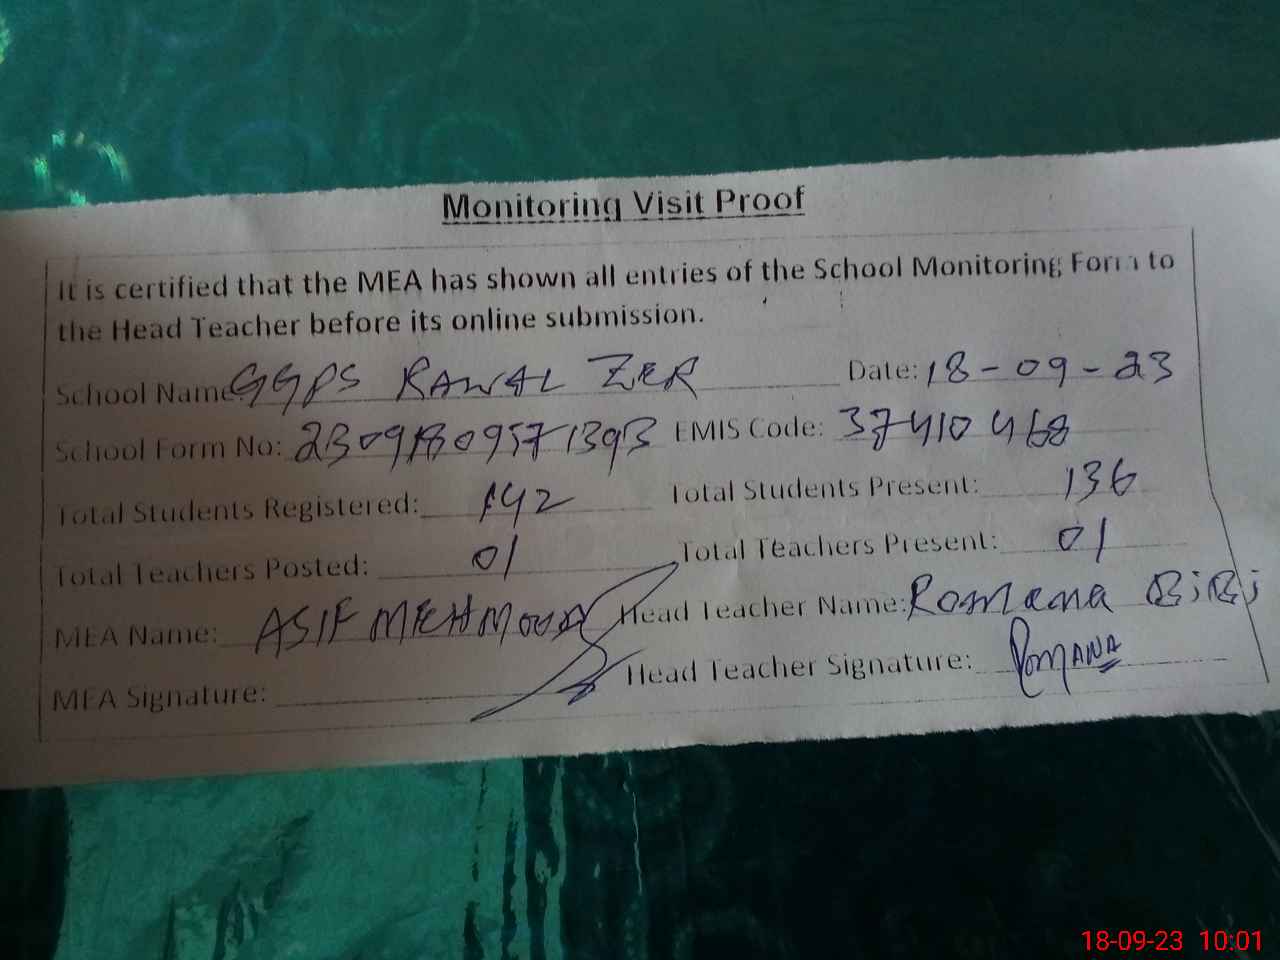 Monitoring Visit Proof
It is certified that the MEA has shown all entries of the School Monitoring Form to
the Head Teacher before its online submission.
School Name GGPS RAWAL ZER Date: 18-09-23
School Form No: 23091809571393 EMIS Code: 37410468
Total Students Registered: 142 Total Students Present: 136
Total Teachers Posted: 01 Total Teachers Present: 01
MEA Name: ASIF MEHMOOD Head Teacher Name: Romana BiBi
MEA Signature: Head Teacher Signature: Romana
18-09-23 10:01